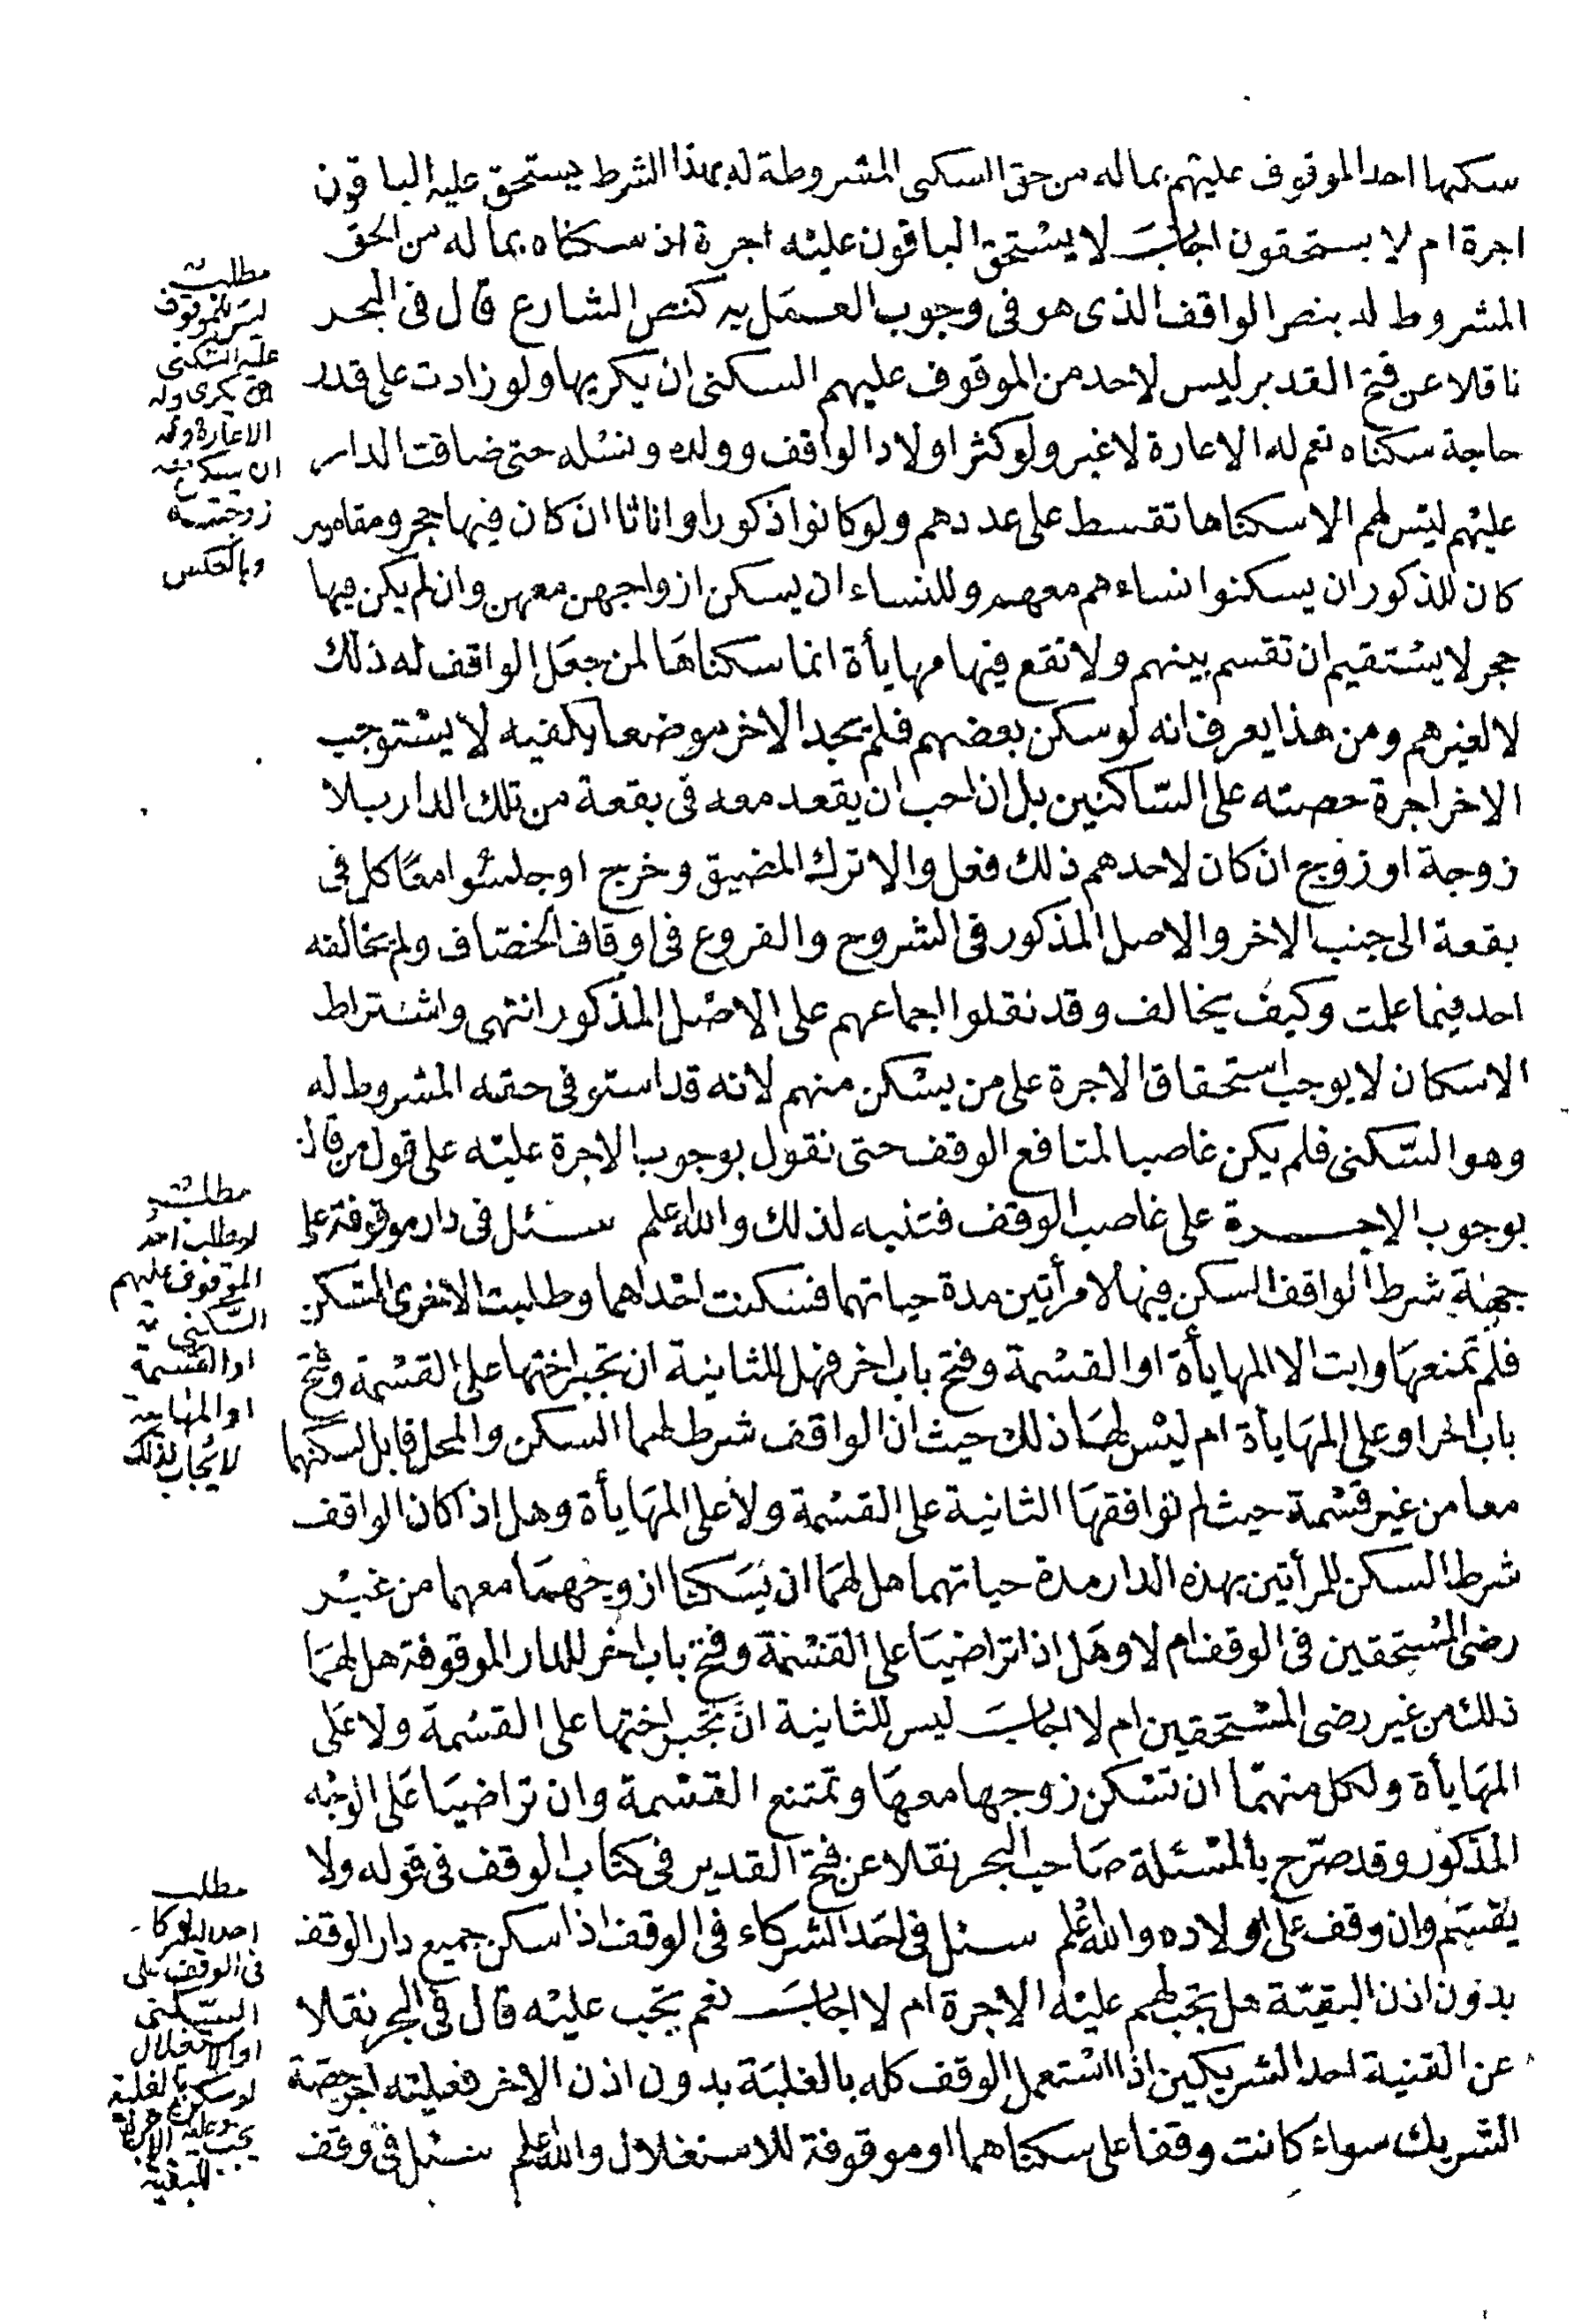 سكنها احد الموقوف عليهم بماله من حق السكنى المشروطة له بهذا الشرط يستحق عليه الباقون
اجرة ام لا يستحقون اجاب لا يستحق الباقون عليه اجرة اذ سكناه بما له من الحق
المشروط له بنص الواقف الذى هو فى وجوب العمل به كنص الشارع قال فى البحر
ناقلا عن فتح القدير ليس لاحد من الموقوف عليهم السكنى ان يكريها ولو زادت على قدر
حاجة سكناه نعم له الاعارة لا غير ولو كثر اولاد الواقف وولده ونسله حتى ضاقت الدار
عليهم ليس لهم الا سكناها تقسط على عددهم ولو كانوا ذكورا واناثا ان كان فيها حجر ومقاصير
كان للذكور ان يسكنوا نساءهم معهم وللنساء ان يسكن ازواجهن معهن وان لم يكن فيها
حجر لا يستقيم ان تقسم بينهم ولا تقع فيها مهايأة انما سكناها لمن جعل الواقف له ذلك
لا لغيرهم ومن هذا يعرف انه لو سكن بعضهم فلم يجد الاخر موضعا يكفيه لا يستوجب
الاخر اجرة حصته على الساكنين بل ان احب ان يقعد معه فى بقعة من تلك الدار بلا
زوجة او زوج ان كان لاحدهم ذلك فعل والا ترك المضيق وخرج او جلسوا معا كل فى
بقعة الى جنب الاخر والاصل المذكور فى الشروح والفروع فى اوقاف الخصاف ولم يخالفه
احد فيما علمت وكيف يخالف وقد نقلوا اجماعهم على الاصل المذكور انتهى واشتراط
الاسكان لا يوجب استحقاق الاجرة على من يسكن منهم لانه قد استوفى حقه المشروط له
وهو السكنى فلم يكن غاصبا لمنافع الوقف حتى نقول بوجوب الاجرة عليه على قول من قال
بوجوب الاجرة على غاصب الوقف فتنبه لذلك والله اعلم سئل فى دار موقوفة على
جهة شرط الواقف السكن فيها لامرأتين مدة حياتهما فسكنت احداهما وطلبت الاخرى السكن
فلم تمنعها وابت الا المهايأة او القسمة وفتح باب اخر فهل للثانية ان تجبر اختها على القسمة وفتح
باب اخر او على المهايأة ام ليس لها ذلك حيث ان الواقف شرط لهما السكن والمحل قابل لسكنهما
معا من غير قسمة حيث لم توافقها الثانية على القسمة ولا على المهايأة وهل اذا كان الواقف
شرط السكن للمرأتين بهذه الدار مدة حياتهما هل لهما ان يسكنا ازوجهما معهما من غير
رضى المستحقين فى الوقف ام لا وهل اذا تراضيا على القسمة وفتح باب اخر للدار الموقوفة هل لهما
ذلك من غير رضى المستحقين ام لا اجاب ليس للثانية ان تجبر اختها على القسمة ولا على
المهايأة ولكل منهما ان تسكن زوجها معها وتمتنع القسمة وان تراضيا على الوجه
المذكور وقد صرح بالمسئلة صاحب البحر نقلا عن فتح القدير فى كتاب الوقف فى قوله ولا
يقسم وان وقف على اولاده والله اعلم سئل فى احد الشركاء فى الوقف اذا سكن جميع دار الوقف
بدون اذن البقية هل تجب لهم عليه الاجرة ام لا اجاب نعم يجب عليه قال فى البحر نقلا
عن القنية احد الشريكين اذا استعمل الوقف كله بالغلبة بدون اذن الاخر فعليه اجر حصة
الشريك سواء كانت وقفا على سكناهما او موقوفة للاستغلال والله اعلم سئل فى وقف
مطلب
ليس للموقوف
عليه السكنى
ان يكرى وله
الاعارة وله
ان يسكن معه
زوجته
وبالعكس
مطلب
لو طلب احد
الموقوف عليهم
السكنى
او القسمة
او المهايية
لا يجاب لذلك
مطلب
احد الشركاء
فى الوقف على
السكنى
او الاستغلال
لو سكن بالغلبة
يجب عليه الاجرة
للبقية